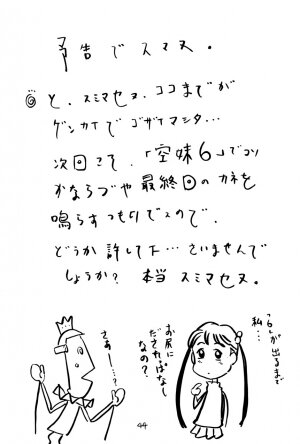 予告でスマヌ。
と、スミマセヌ、ココまでが
ゲンカイでゴザイマシタ…
次回こそ、「空妹6」でコソ
かならづや最終回のカネを
鳴らすつもりでスので、
どうか許して下…さいませんで
しょうか? 本当 スミマセヌ。
「6」が出るまで
私…
お尻に
だされっぱなし
なの?
さあー…?
44